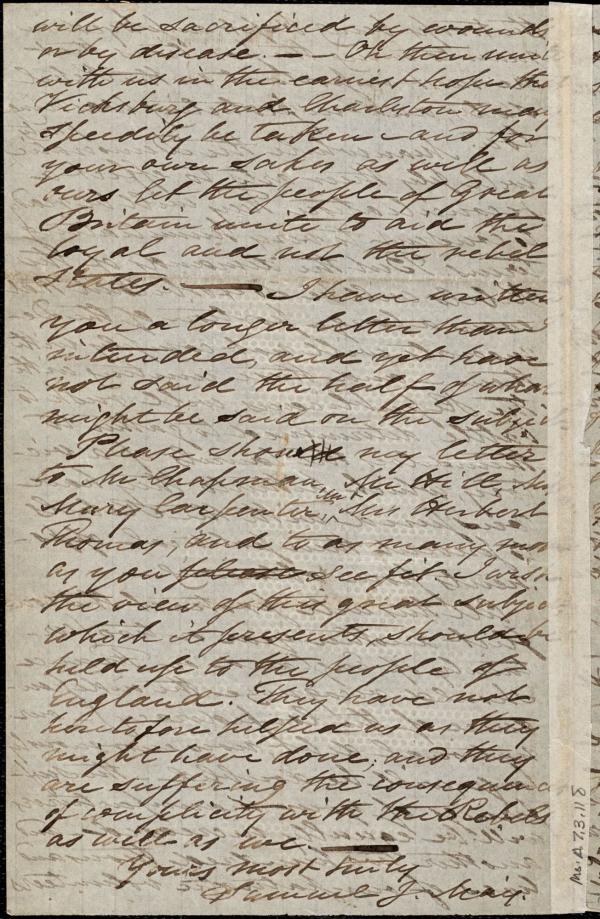 will be sacrificed by wounds
or by disease. — — Oh then unite
with us in the earnest hope that
Vicksburg and Charleston may
speedily be taken – and for
your own sakes as well as
ours let the people of Great
Britain unite to aid the
loyal and not the rebel
States. —— I have written
you a longer letter than I
intended, and yet have
not said the half of what
might be said on the subject
Please show my letter
to Mr Chapman, Mr Hill,
Mary Carpenter, Mrs Herbert
Thomas, and to as many more
as you please see fit. I wish
the view of this great subject
which it presents, should be
held up to the people of
England. They have not
heretofore helped us as they
might have done, and they
are suffering the consequences
of complicity with the Rebels
as well as we. ——
Yours most truly
Samuel J. May.
Ms. A.7.3.118